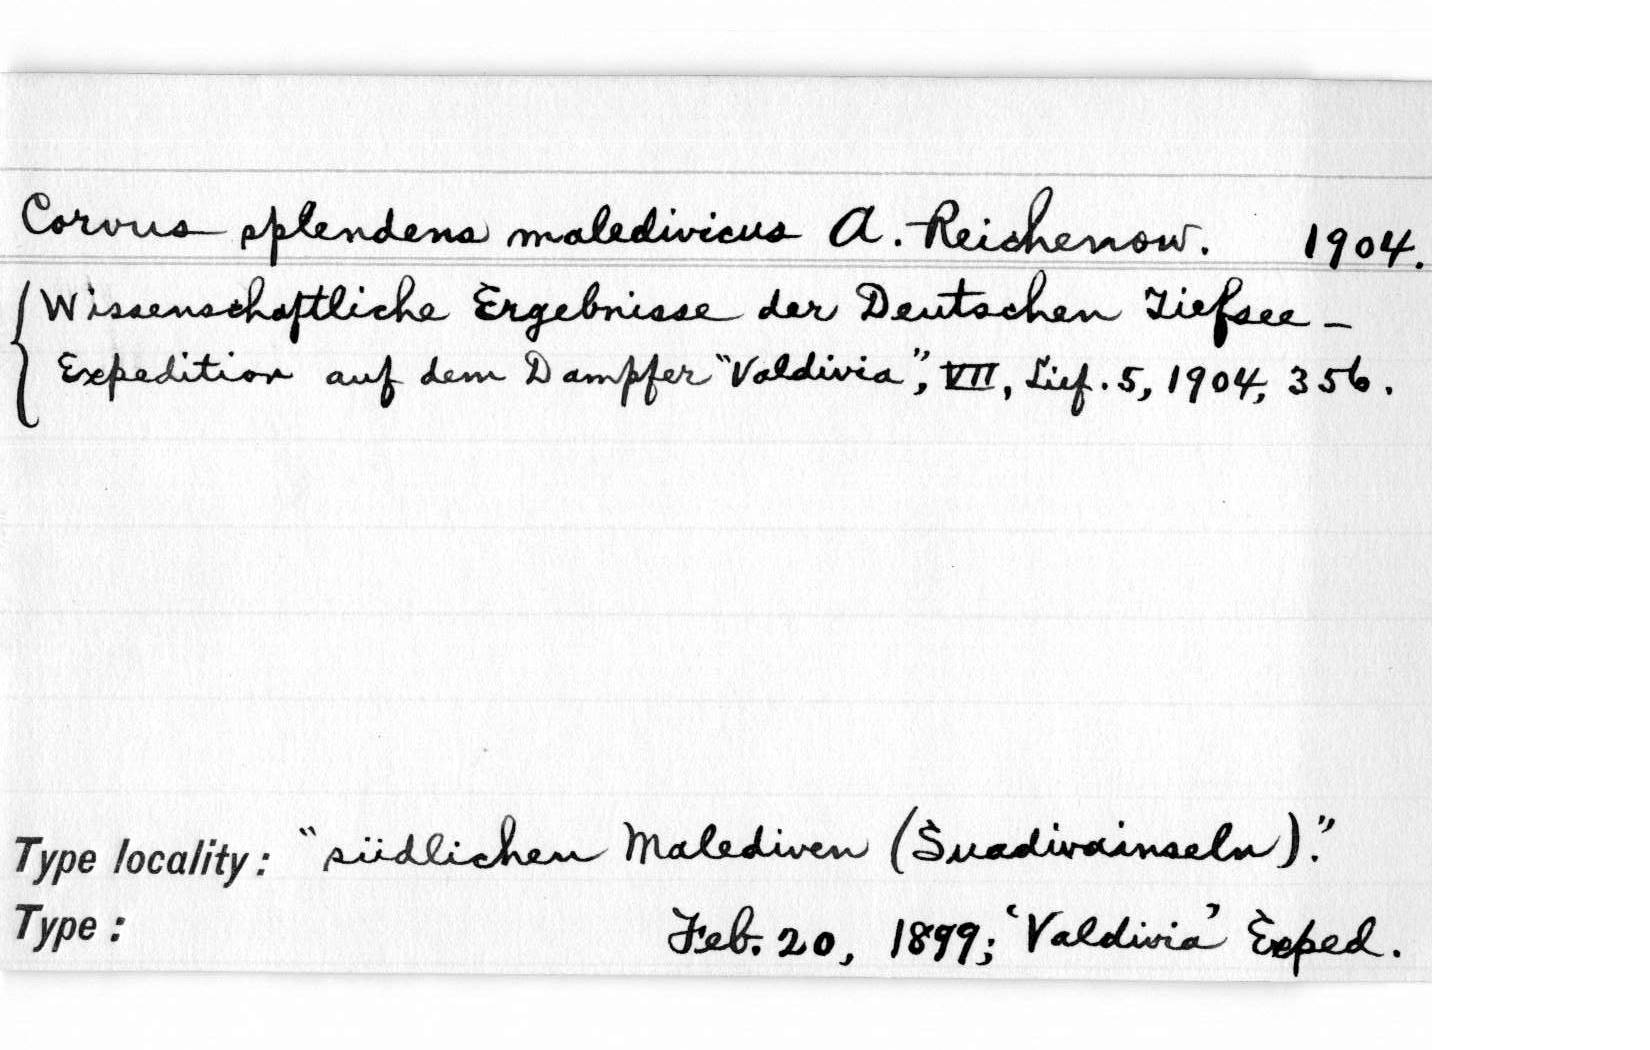 Corvus splendens maledivicus A. Reichenow. 1904.
Wissenschaftliche Ergebnisse der Deutschen Tiefsee-
Expedition auf dem Dampfer "Valdivia", VII, Lief. 5, 1904, 356.
Type locality: "südlichen Malediven (Suadivainseln)."
Type: Feb. 20, 1899; 'Valdivia' Exped.